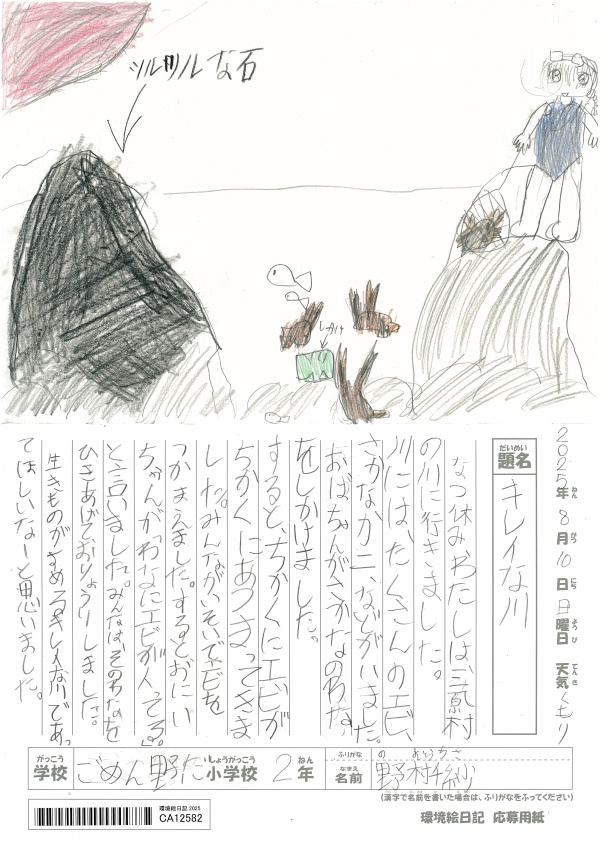 ツルツルな石
しかけ
2025年 8月 10日 日曜日 天気 くもり
ねん がつ にち ようび てんき
だいめい
題名
キレイな川
なつ休みわたしは、三原村
の川に行きました。
川には、たくさんのエビ、
さかなカニ、などがいました。
おばちゃんがさかなのわな
をしかけました。
すると、ちかくにエビが
ちかくにあつまってきま
した。みんながいそいでエビを
つかまえました。するとおにい
ちゃんが「わなにエビが入ってる。」
と言いました。みんなはそのわなを
ひきあげておりょうりしました。
生きものがすめるキレイな川であっ
てほしいなーと思いました。
がっこう
学校
ごめん野だ
しょうがっこう
小学校
2
ねん
年
ふりがな
なまえ
名前
の
野村
(漢字で名前を書いた場合は、ふりがなをふってください)
環境絵日記 2025
CA12582
環境絵日記 応募用紙